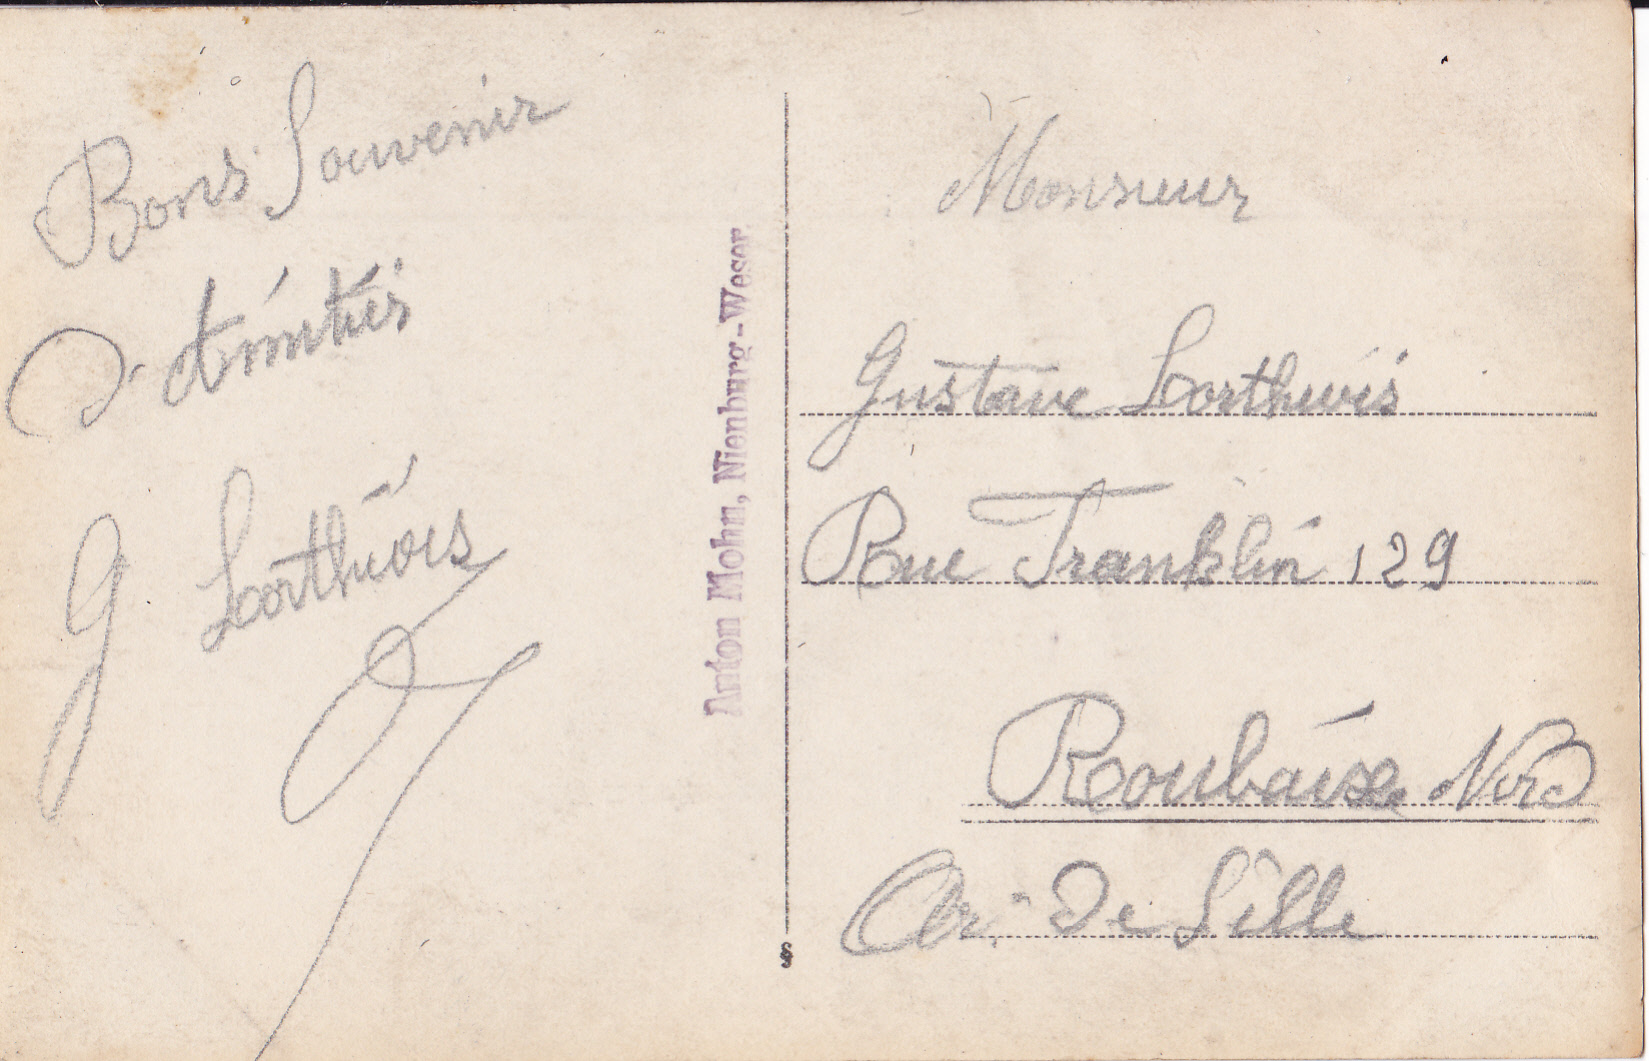 Bons Souvenir
d'Amitiés
G Lorthiois
Anton Mohn, Nienburg-Weser.
Monsieur
Gustave Lorthiois
Rue Franklin 129
Roubaix Nord
Ar. De Lille